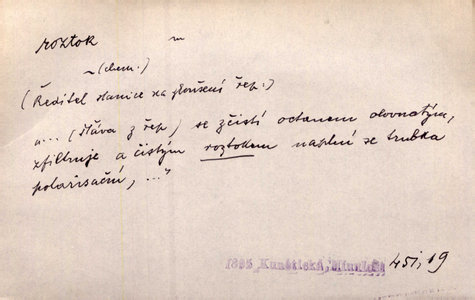 roztok m
~ (chem.)
(Ředitel stanice na zkoušení řep:)
„... (šťáva z řep) se zčistí octanem olovnatým,
zfiltruje a čistým roztokem naplní se trubka
polarisační, ..."
1895 Kunětická, 451, 19